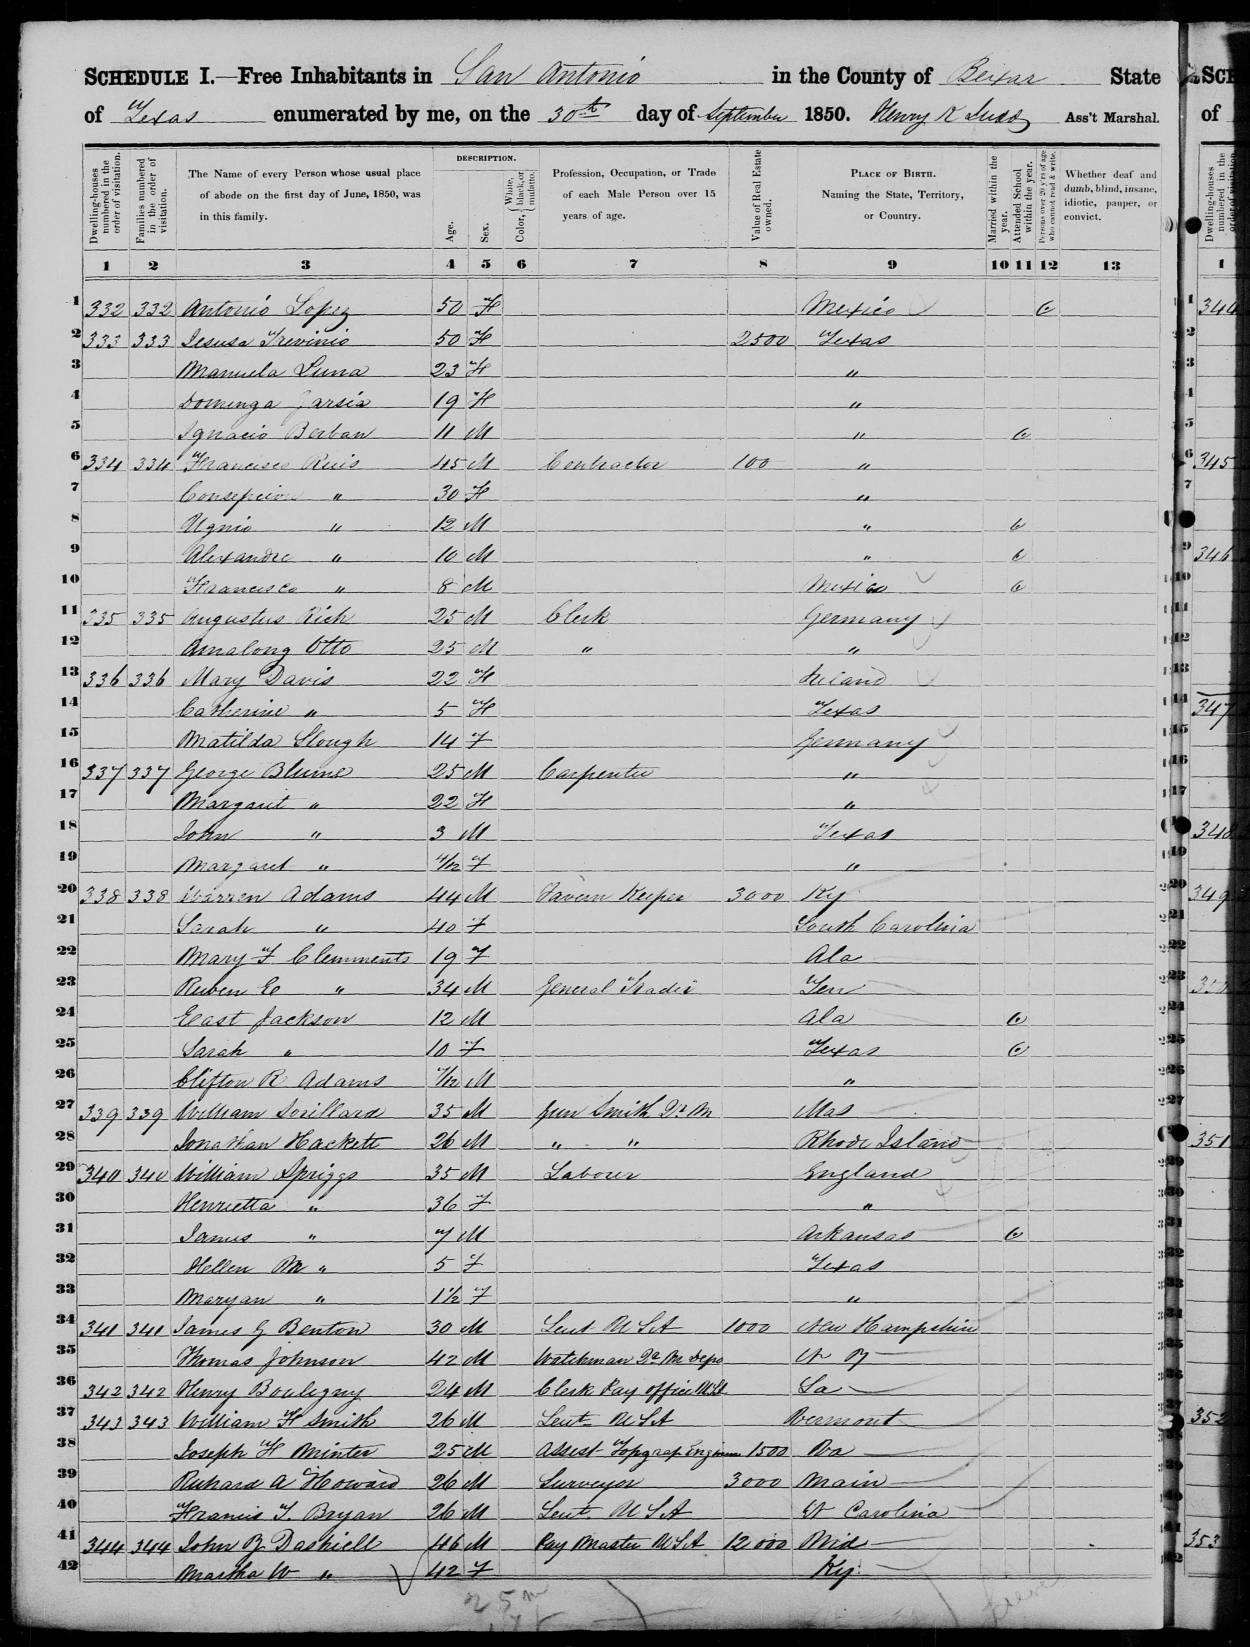 SCHEDULE I.—Free Inhabitants in San Antonio in the County of Bexar State
of Texas enumerated by me, on the 30th day of September 1850. Henry K Judd Ass't Marshal.
Dwelling-houses numbered in the order of visitation.
Families numbered in the order of visitation.
The Name of every Person whose usual place of abode on the first day of June, 1850, was in this family.
DESCRIPTION.
Age.
Sex.
Color, White, black, or mulatto.
Profession, Occupation, or Trade of each Male Person over 15 years of age.
Value of Real Estate owned.
PLACE OF BIRTH. Naming the State, Territory, or Country.
Married within the year.
Attended School within the year.
Persons over 20 y'rs of age who cannot read & write.
Whether deaf and dumb, blind, insane, idiotic, pauper, or convict.
1 2 3 4 5 6 7 8 9 10 11 12 13
1 332 332 Antonio Lopez 50 F Mexico
2 333 333 Jesusa Trevinio 50 F 2500 Texas
3 Manuela Luna 23 F "
4 Domenga Garsia 19 F "
5 Ignacio Berban 11 M "
6 334 334 Francisco Ruis 45 M Contractor 100 "
7 Consepcion " 30 F "
8 Ugnio " 12 M "
9 Alexandre " 10 M "
10 Francisco " 8 M Mexico
11 335 335 Augustus Rich 25 M Clerk Germany
12 Amalong Otto 25 M " "
13 336 336 Mary Davis 22 F Ireland
14 Catherine " 5 F Texas
15 Matilda Slough 14 F Germany
16 337 337 George Blume 25 M Carpenter "
17 Margaret " 22 F "
18 John " 3 M Texas
19 Margaret " 4/12 F "
20 338 338 Warren Adams 44 M Tavern Keeper 3000 Ky
21 Sarah " 40 F South Carolina
22 Mary F Clemments 19 F Ala
23 Reuben E " 34 M General Trader Ten
24 East Jackson 12 M Ala
25 Sarah " 10 F Texas
26 Clifton R Adams 7/12 M "
27 339 339 William Lorillard 35 M Gun Smith Qr M Mas
28 Jonathan Hackett 26 M " " Rhode Island
29 340 340 William Spriggs 35 M Labourer England
30 Henrietta " 36 F "
31 James " 7 M Arkansas
32 Hellen M " 5 F Texas
33 Maryan " 1 1/2 F "
34 341 341 James G Benton 30 M Leut U S A 1000 New Hampshire
35 Thomas Johnson 42 M Watchman Qr M Depo N Y
36 342 342 Henry Bouligny 24 M Clerk Pay office USA La
37 343 343 William F Smith 26 M Leut U S A Vermont
38 Joseph F Minter 25 M Assist Topgrap Engineer 1500 Va
39 Richard A Howard 26 M Surveyor 3000 Main
40 Francis T. Bryan 26 M Leut. U S A N Carolina
41 344 344 John Y Dashiell 46 M Pay Master U S A 12000 Mid
42 Martha W " 42 F Ky